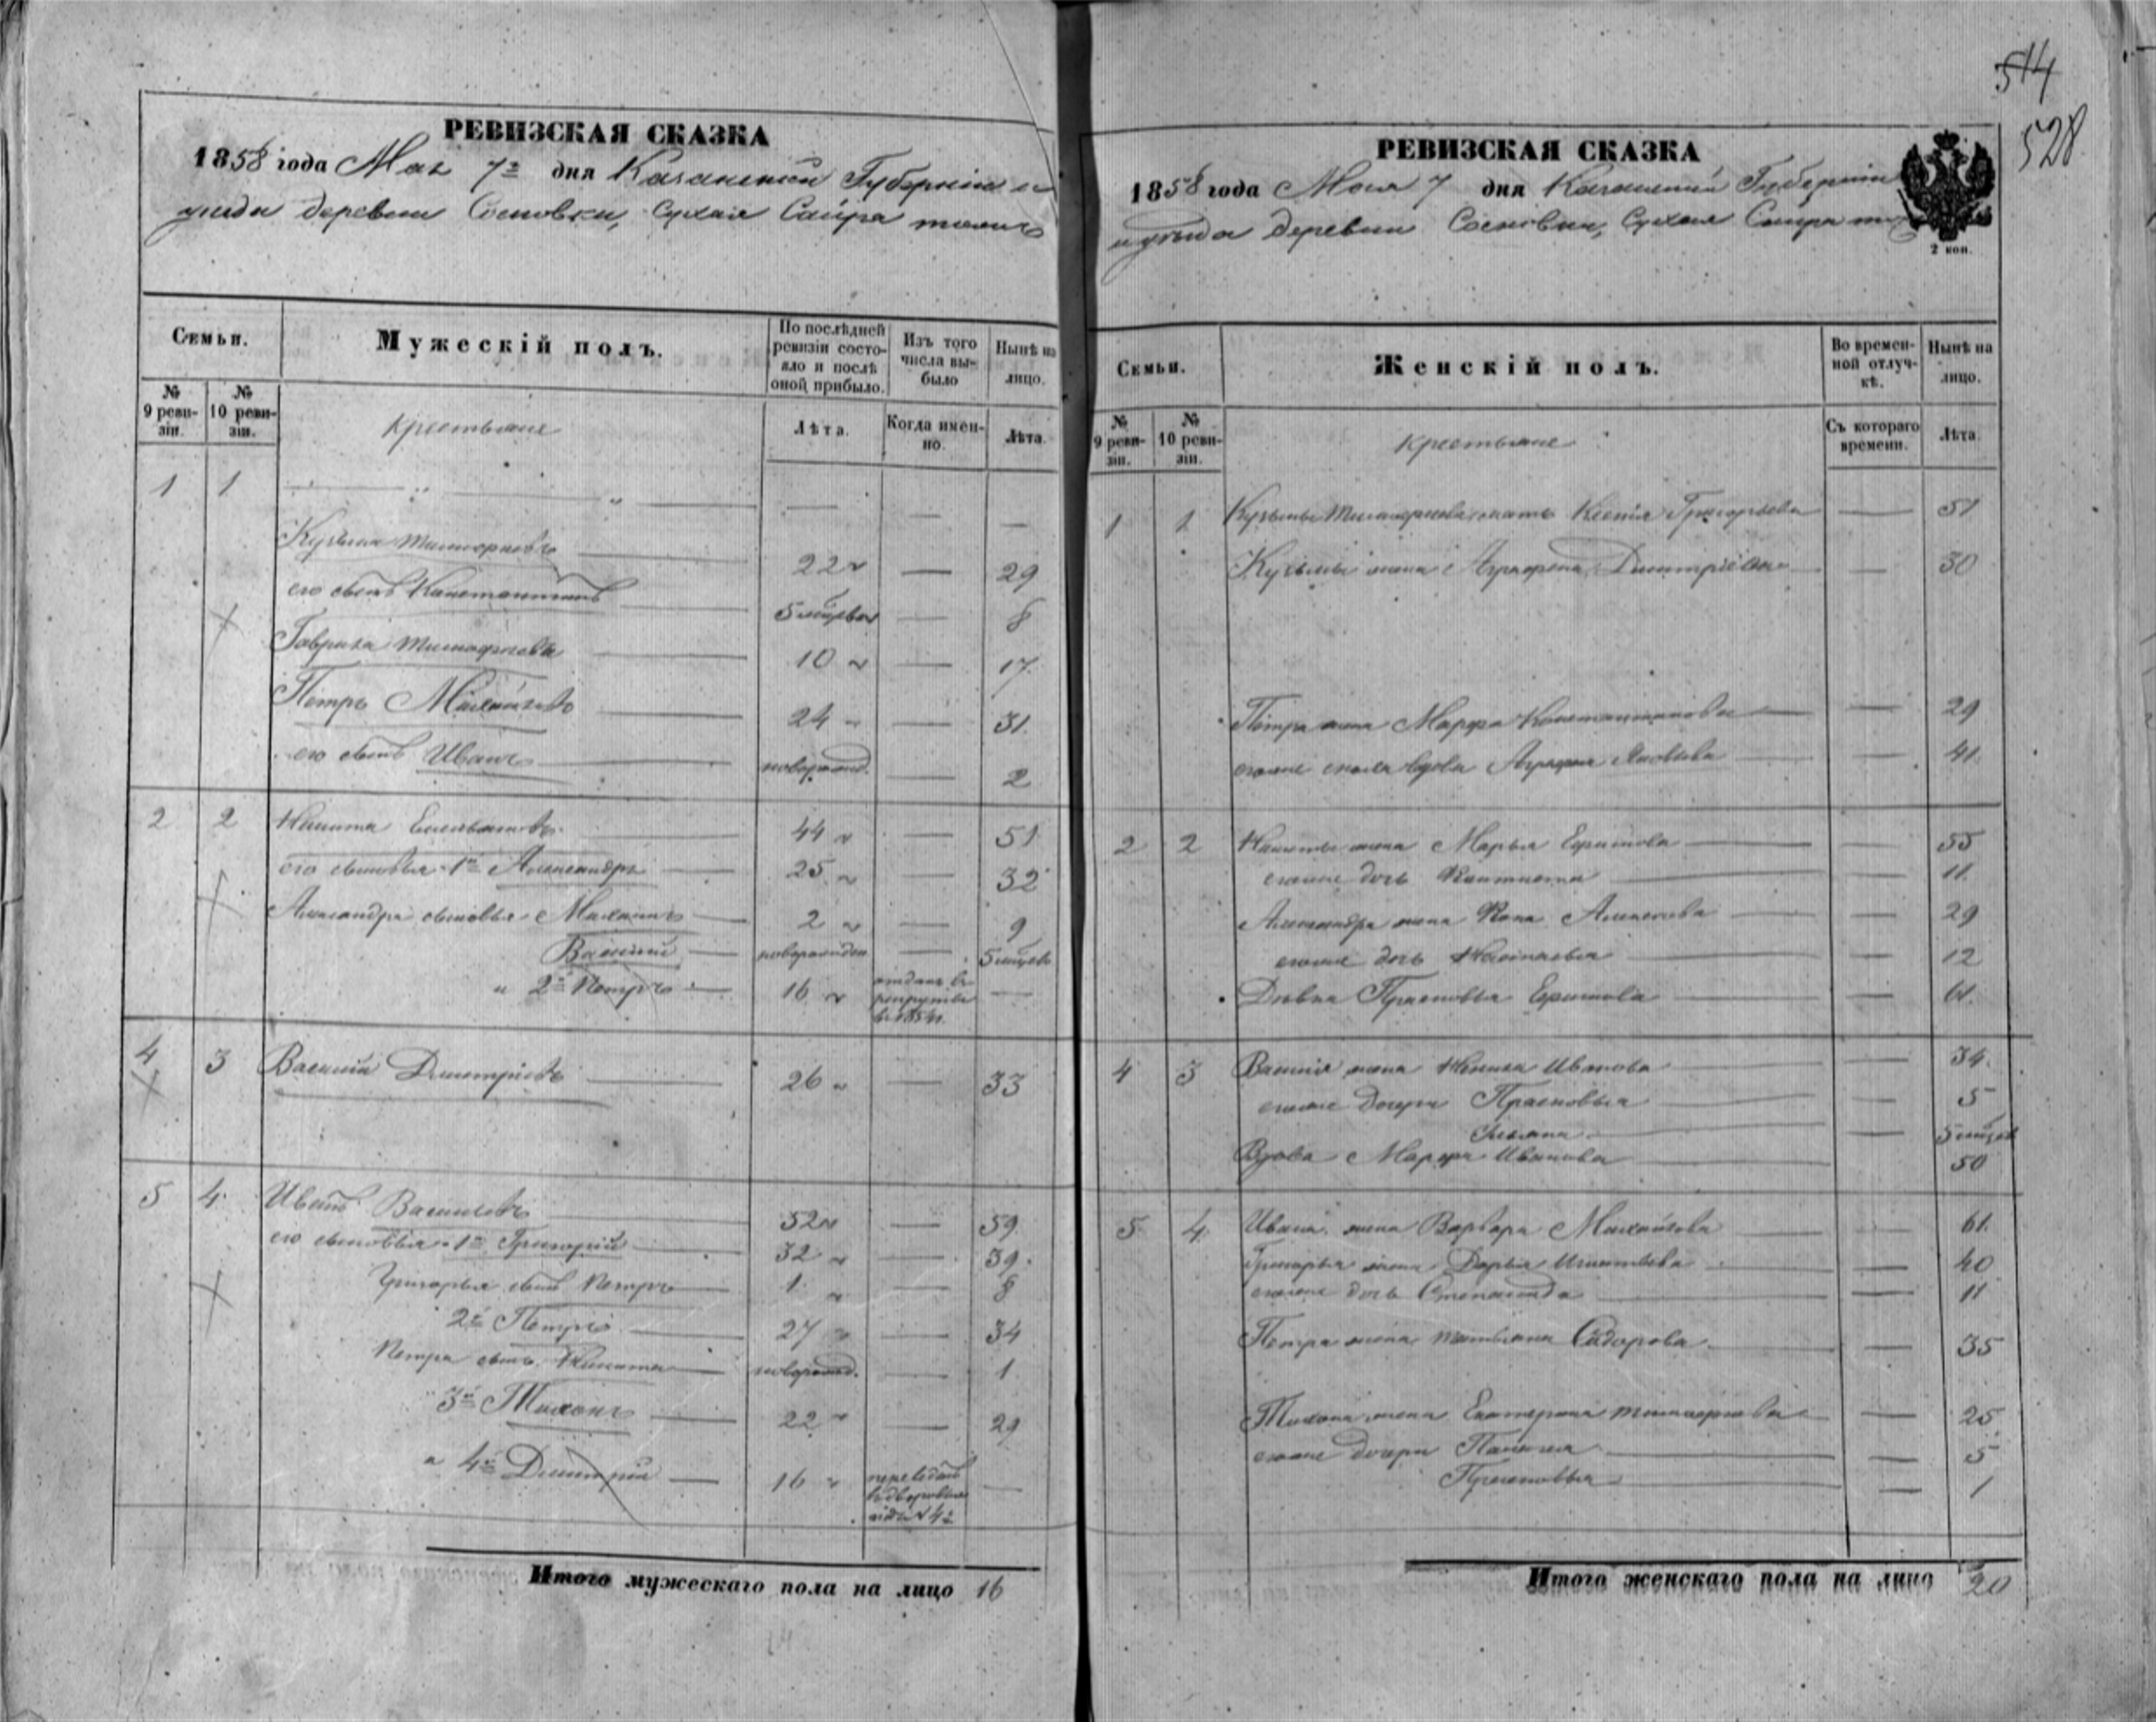 514
528
РЕВИЗСКАЯ СКАЗКА
1858 года Мая 7го дня Казанской Губерніи и
уезда деревни Сосновки, Сухая Саира тожъ
Семьи.
Мужескій полъ.
По послѣдней ревизіи состояло и послѣ оной прибыло.
Изъ того числа выбыло
Нынѣ на лицо.
№ 9 ревизіи.
№ 10 ревизіи.
Крестьяне
Лѣта.
Когда именно.
Лѣта.
1 1
Кузьма Тимофеевъ 22 — 29
его сынъ Константинъ 5 мѣсяцев — 8
Гаврила Тимофеевъ 10 — 17
Петръ Михайловъ 24 — 31
его сынъ Иванъ новорожд. — 2
2 2 Никита 44 — 51
его сыновья 1й Александръ 25 — 32
Александра сыновья 2 — 9
Василий новорожден — 5 мѣсяцев
и 2й Петръ 16 отданъ в рекруты в 1854 —
4 3 Василий Дмитріевъ 26 — 33
5 4 Иванъ Васильевъ 52 — 59
его сыновья 1й Григорій 32 — 39
Григорья сынъ Петръ 1 — 8
2й Петръ 27 — 34
Петра сынъ Никита новорожд. — 1
3й Тихонъ 22 — 29
и 4й Дмитрій 16 —
Итого мужескаго пола на лицо 16
РЕВИЗСКАЯ СКАЗКА
1858 года Мая 7 дня Казанской Губерніи
и уезда деревни Сосновки, Сухая Саира
2 коп.
Семьи.
Женскій полъ.
Во временной отлучкѣ.
Нынѣ на лицо.
№ 9 ревизіи.
№ 10 ревизіи.
Крестьяне
Съ котораго времени.
Лѣта.
1 1 Кузьмы Тимофеева мать Ксенія Григорьева — 51
Кузьмы жена Аграфена Дмитріева — 30
Петра жена Марфа Константинова — 29
вдова 41
2 2 Никиты жена Марья Ефимова — 55
дочь 11
Александра жена Алексеева — 29
дочь Наталья — 12
Девка Прасковья Ефимова — 61
4 3 Василія жена Иванова — 34
дочери Прасковья — 5
— 5 мѣсяцев
Вдова Марфа Иванова 50
5 4 Ивана жена Варвара Михайлова 61
Григорья жена Дарья Игнатьева — 40
дочь Степанида — 11
Петра жена Татьяна Сидорова — 35
Тихона жена Екатерина Тимофеева — 25
дочери Палагея — 5
Прасковья — 1
Итого женскаго пола на лицо 20